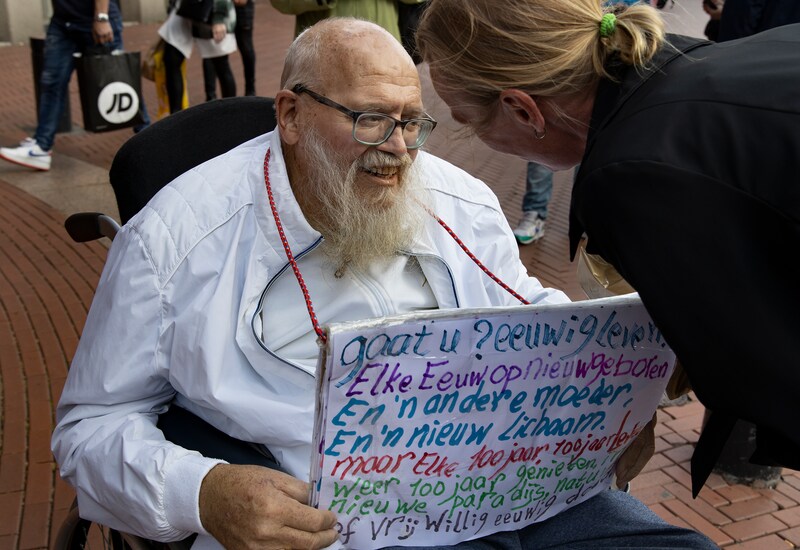 JD
gaat u ? eeuwig leven,
Elke Eeuw opnieuw geboren
En 'n andere moeder,
En 'n nieuw Lichaam.
maar Elke 100 jaar 100 jaar
weer 100 jaar genieten,
nieuwe paradijs, natu
of Vrij Willig eeuwig